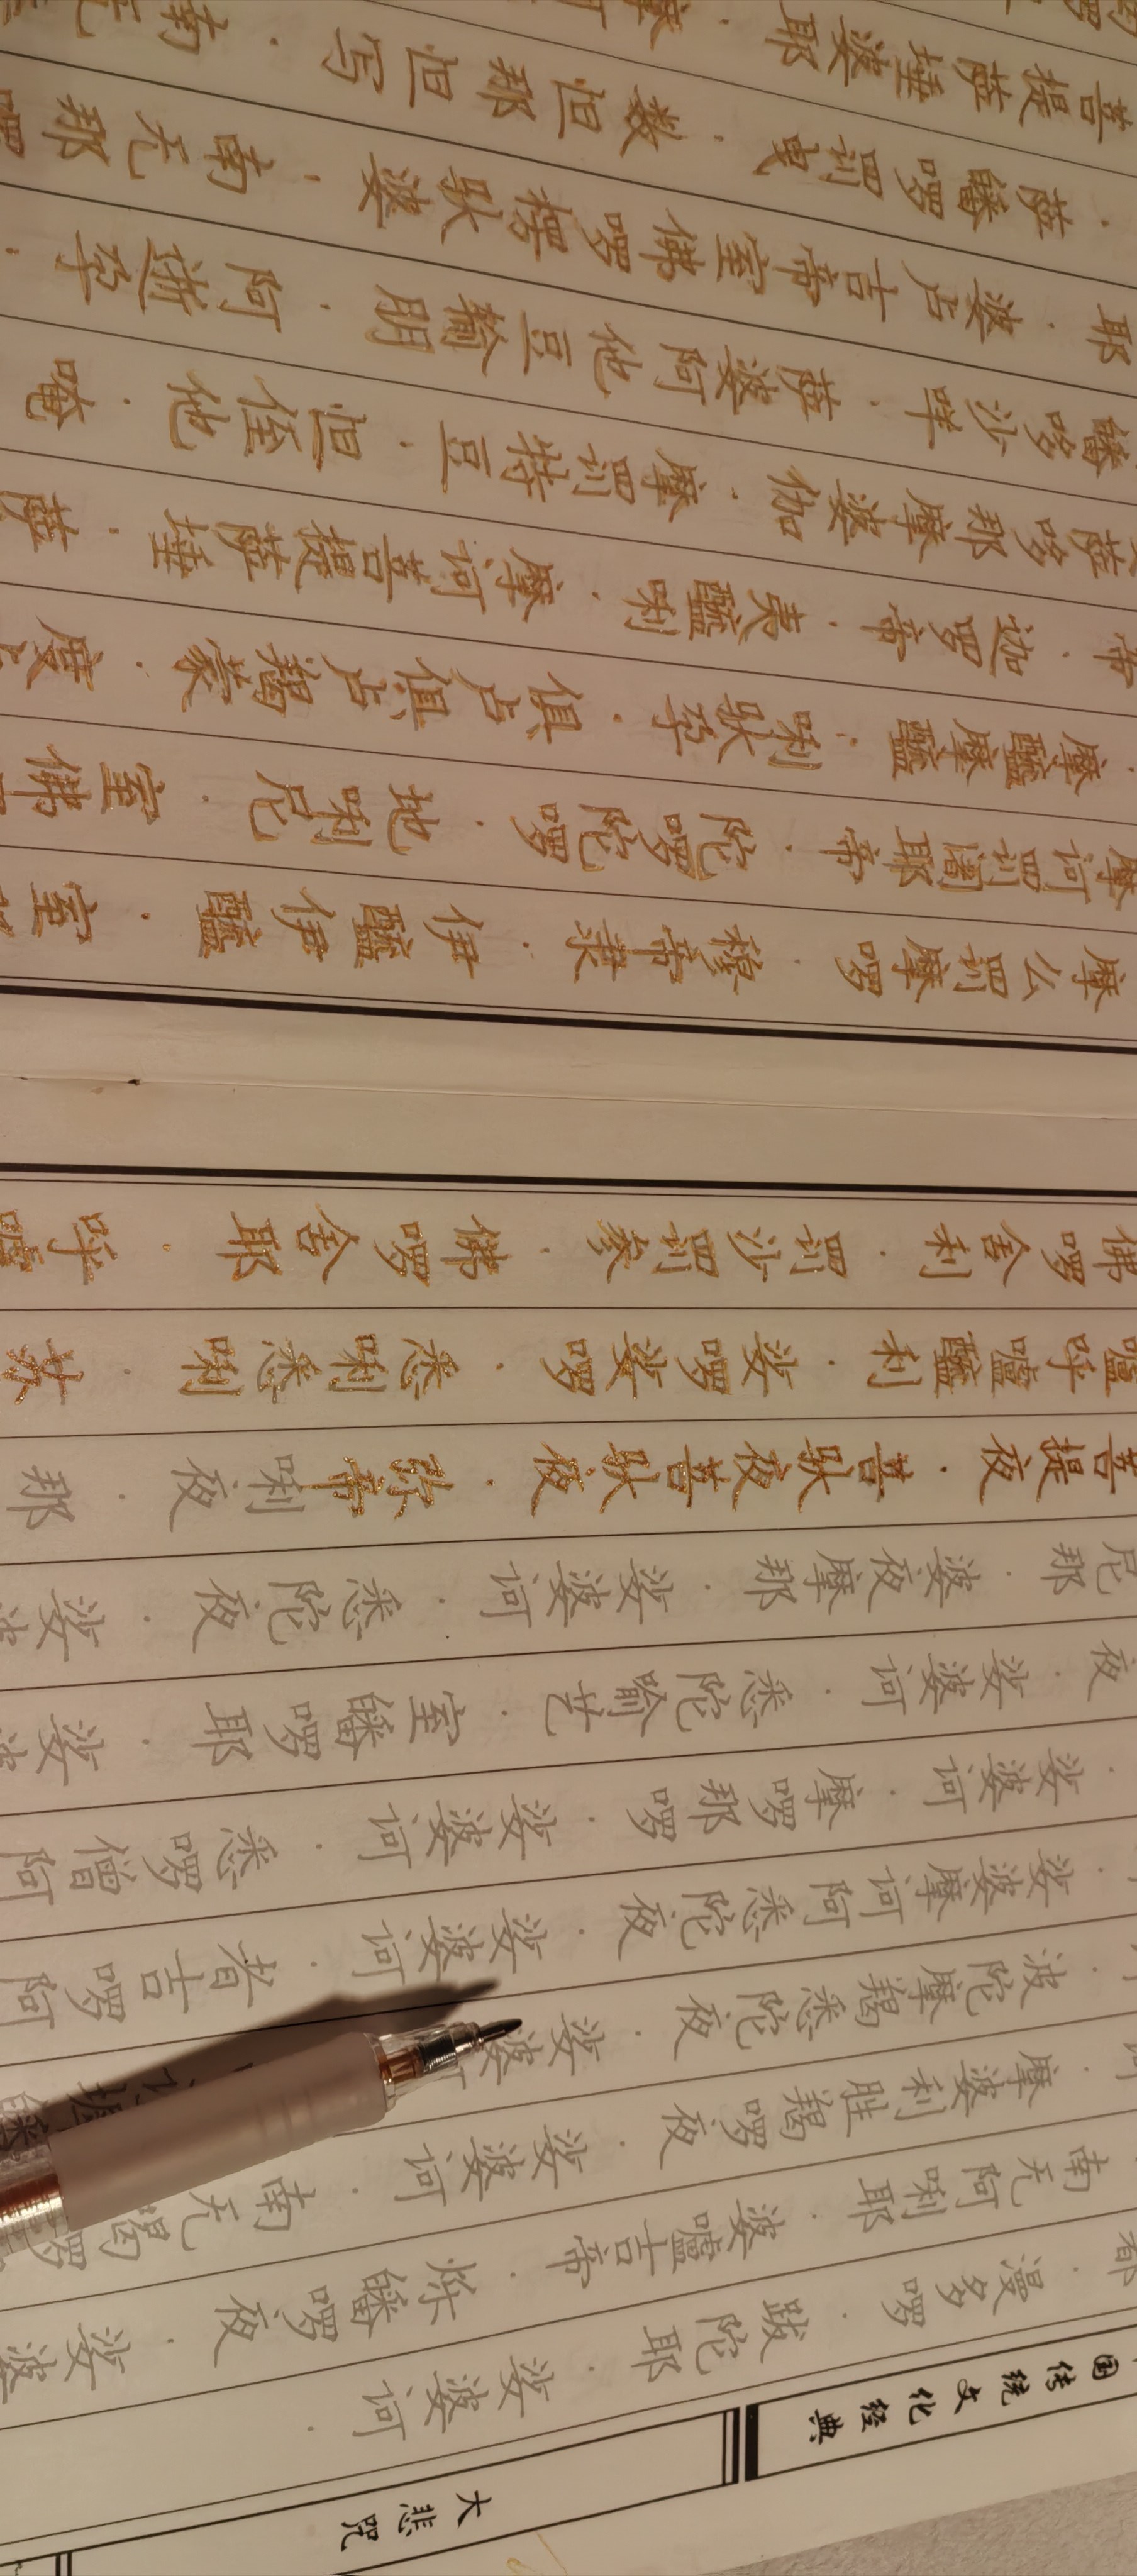 菩提萨埵婆耶 · 摩
· 萨皤啰罚曳 · 数怛那怛写 · 南无
耶 · 婆卢吉帝室佛啰楞驮婆 · 南无那
皤哆沙咩 · 萨婆阿他豆输朋 · 阿逝孕 ·
萨哆那摩婆伽 · 摩罚特豆 · 怛侄他 · 唵
帝 · 迦罗帝 · 夷醯唎 · 摩诃菩提萨埵 · 萨
· 摩醯摩醯 · 唎驮孕 · 俱卢俱卢羯蒙 · 度
摩诃罚阇耶帝 · 陀啰陀啰 · 地唎尼 · 室佛
摩么罚摩啰 · 穆帝隶 · 伊醯伊醯 · 室
佛啰舍利 · 罚沙罚参 · 佛啰舍耶 · 呼嚧
嚧呼嚧醯利 · 娑啰娑啰 · 悉唎悉唎 · 苏
菩提夜 · 菩驮夜菩驮夜 · 弥帝唎夜 · 那
尼那 · 婆夜摩那 · 娑婆诃 · 悉陀夜 · 娑
夜 · 娑婆诃 · 悉陀喻艺 · 室皤啰耶 · 娑
· 娑婆诃 · 摩啰那啰 · 娑婆诃 · 悉啰僧阿
· 娑婆摩诃阿悉陀夜 · 娑婆诃 · 者吉啰阿
· 波陀摩羯悉陀夜 · 娑婆
· 摩婆利胜羯啰夜 · 娑婆诃 · 南无喝啰
南无阿唎耶 · 婆嚧吉帝 · 烁皤啰夜 · 娑婆
都 · 漫多啰 · 跋陀耶 · 娑婆诃 ·
国传统文化经典
大悲咒